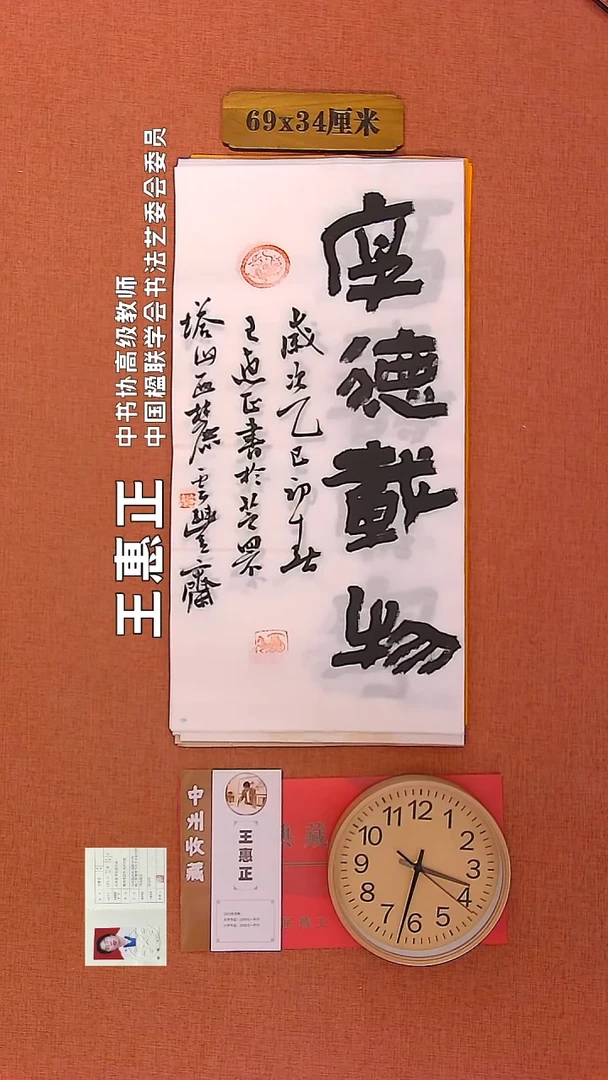 69x34厘米
厚德載物
歲次乙巳初春
王惠正書於
塔山西麓雲豐齋
王惠正
中书协高级教师
中国楹联学会书法艺委会委员
中州收藏
王惠正
典藏
12
1
2
3
4
5
6
7
8
9
10
11